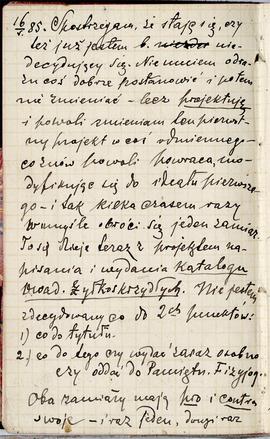 16/V 85. Spostrzegam, że staję się, czy
też już jestem b. nie-
decydujący się. Nie umiem odra-
zu coś dobrze postanowić i potem
nie zmieniać – lecz projektuję
i powoli zmieniam ten pierwot-
ny projekt w coś odmiennego
co znów powoli powraca, mo-
dyfikując się do ideału pierwsze-
go – i tak kilka czasem razy
w umyśle obróci się jeden zamiar.
To się dzieje teraz z projektem na-
pisania i wydania Katalogu
owad. żyłkoskrzydłych. Nie jestem
zdecydowany co do 2ch punktów:
1) co do tytułu.
2) co do tego czy wydać zaraz osobno
czy oddać do Pamiętn. Fizyjog.
Oba zamiary mają pro i contra
swoje – i raz jeden, drugi raz